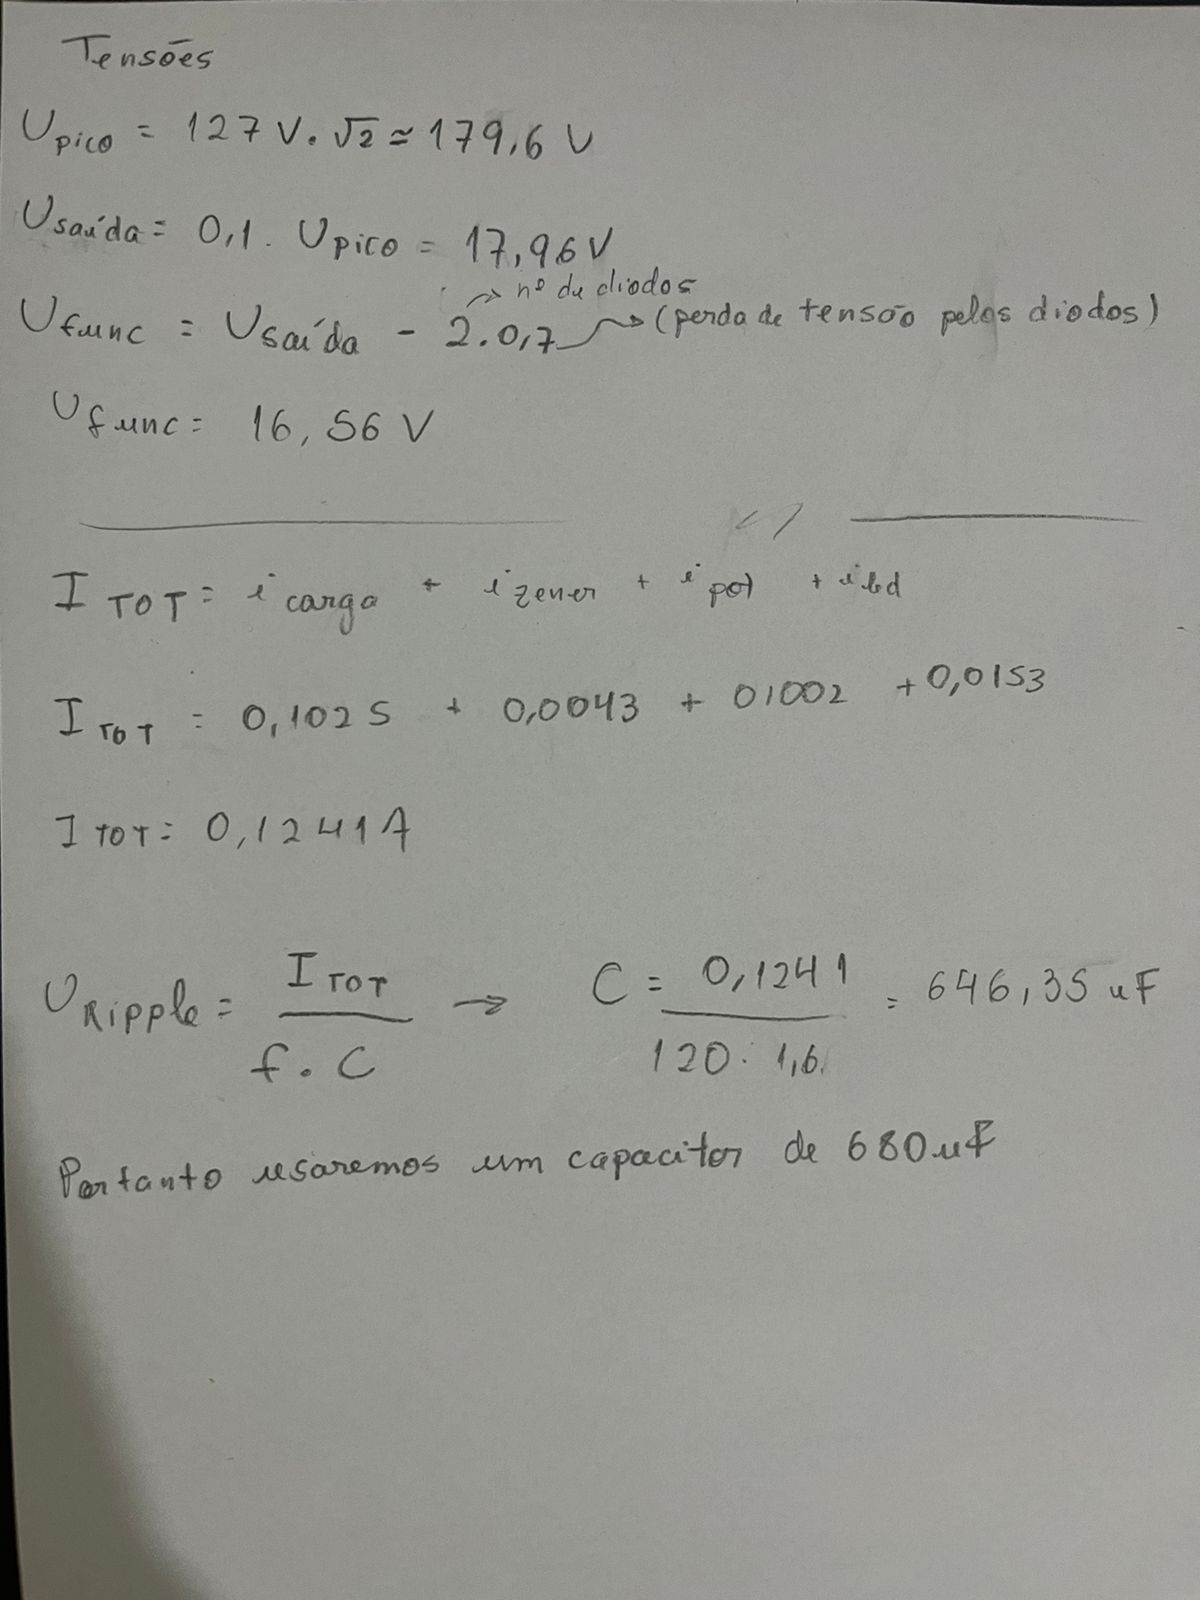 Tensões
Upico = 127 V . √2 ≃ 179,6 V
Usaída = 0,1 . Upico = 17,96 V
→ nº de diodos
Ufunc = Usaída - 2.0,7 → (perda de tensão pelos diodos)
Ufunc = 16,56 V
ITOT = i carga + i zener + i pot + i led
ITOT = 0,1025 + 0,0043 + 0,002 + 0,0153
ITOT = 0,1241 A
URipple = ITOT / f . C → C = 0,1241 / 120 . 1,6 = 646,35 uF
Portanto usaremos um capacitor de 680 uF